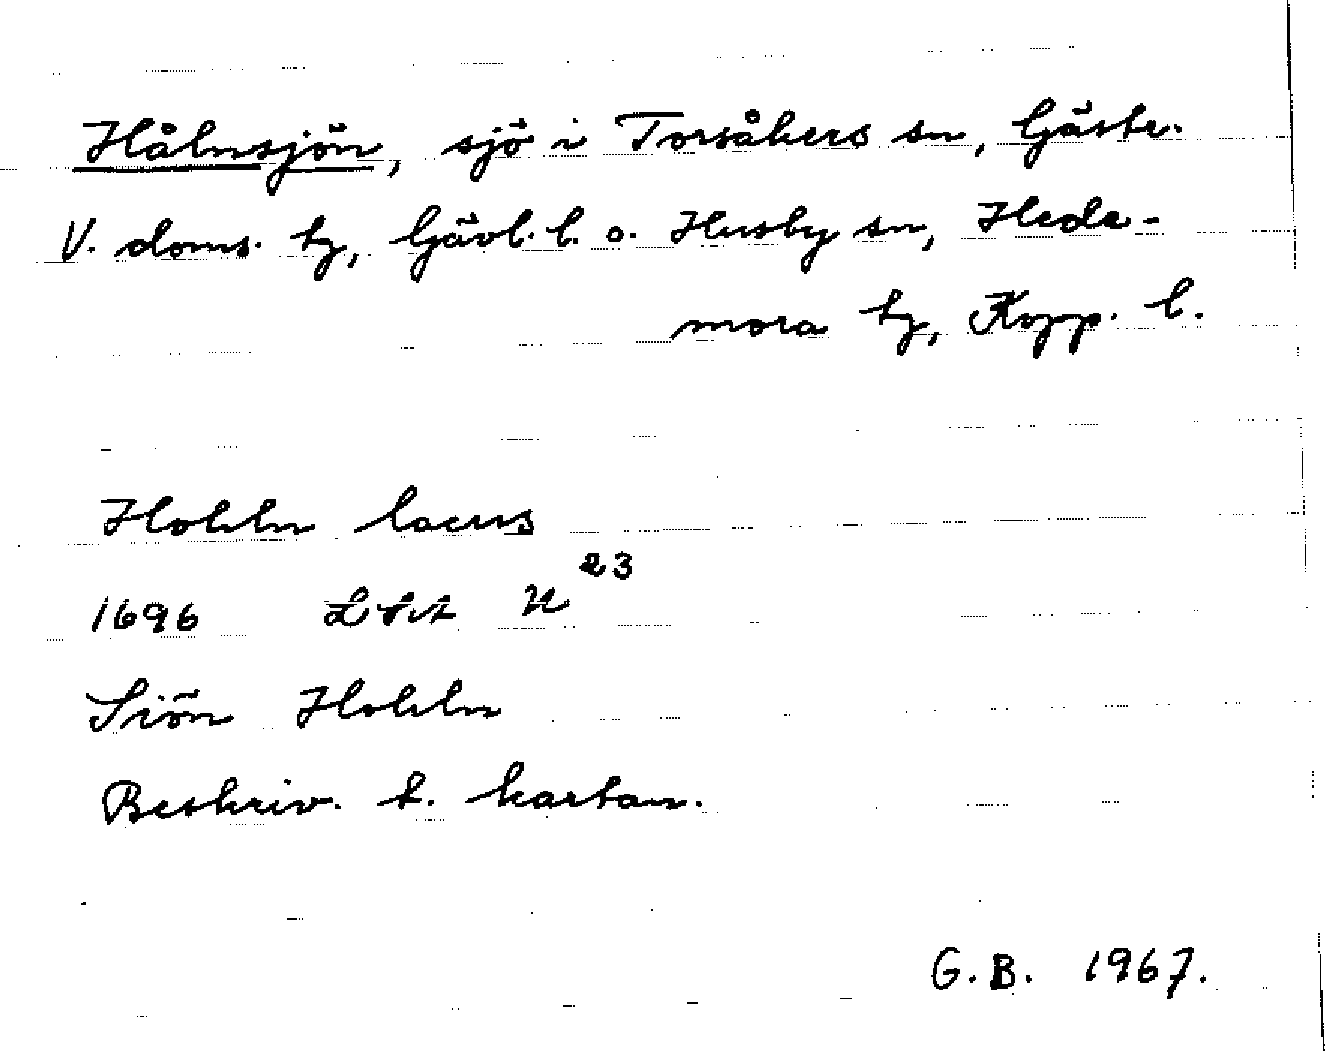 Hålnsjön, sjö i Torsåkers sn, Gästr.
V. doms. tg, Gävl. l. o. Husby sn, Hede-
mora tg, Kopp. l.
Hohln lacus
1696 LSA U²³
Siön Hohln
Beskriv. t. kartan.
G.B. 1967.